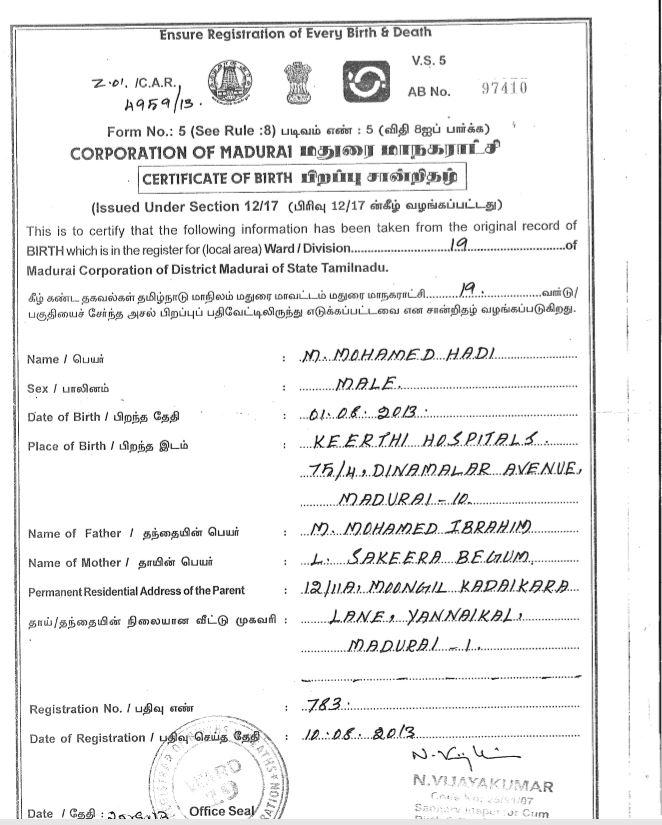 Ensure Registration of Every Birth & Death
V.S. 5
Z.01. /C.A.R.,
4959/13.
AB No. 97410
Form No.: 5 (See Rule :8) படிவம் எண் : 5 (விதி 8ஐப் பார்க்க)
CORPORATION OF MADURAI மதுரை மாநகராட்சி
CERTIFICATE OF BIRTH பிறப்பு சான்றிதழ்
(Issued Under Section 12/17 (பிரிவு 12/17 ன்கீழ் வழங்கப்பட்டது)
This is to certify that the following information has been taken from the original record of
BIRTH which is in the register for (local area) Ward / Division.....19.....of
Madurai Corporation of District Madurai of State Tamilnadu.
கீழ் கண்ட தகவல்கள் தமிழ்நாடு மாநிலம் மதுரை மாவட்டம் மதுரை மாநகராட்சி.....19......வார்டு/
பகுதியைச் சேர்ந்த அசல் பிறப்புப் பதிவேட்டிலிருந்து எடுக்கப்பட்டவை என சான்றிதழ் வழங்கப்படுகிறது.
Name / பெயர் : M. MOHAMED HADI
Sex / பாலினம் : MALE.
Date of Birth / பிறந்த தேதி : 01.08.2013.
Place of Birth / பிறந்த இடம் : KEERTHI HOSPITALS.
75/4, DINAMALAR AVENUE,
MADURAI-10.
Name of Father / தந்தையின் பெயர் : M. MOHAMED IBRAHIM
Name of Mother / தாயின் பெயர் : L. SAKEERA BEGUM,
Permanent Residential Address of the Parent : 12/11A, MOONGIL KADAIKARA
தாய்/தந்தையின் நிலையான வீட்டு முகவரி : LANE, YANNAIKAL,
MADURAI-1.
Registration No. / பதிவு எண் : 783.
Date of Registration / பதிவு செய்த தேதி : 10.08.2013
N.VIJAYAKUMAR
WARD
19
Date / தேதி :
Office Seal
Sanitary Inspector Cum